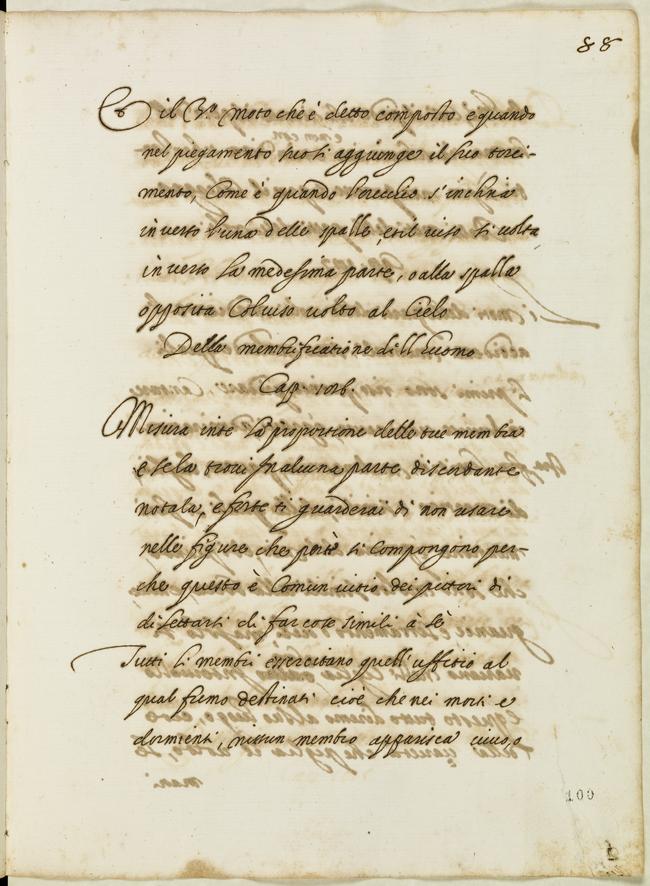 88
Et il 3.º moto che è detto composto è quando
nel piegamento suo si aggiunge il suo torci-
mento, Come è quando l'orecchio s'inchina
in verso l'una delle spalle, et il viso si volta
in verso la medesima parte, o alla spalla
opposita Col viso volto al Cielo
Della membrificatione dell huomo
Cap.
Misura in te la proportione delle tue membra
e se la trovi in alcuna parte discordante
notala, e forte ti guarderai di non usare
nelle figure che per te si compongono per-
che questo è Comun vitio dei pittori di
dilettarsi di far cose simili à sè
Tutti li membri essercitano quell'uffitio al
qual furno destinati cioè che nei morti e
dormienti, nissun membro apparisca vivo, o
100